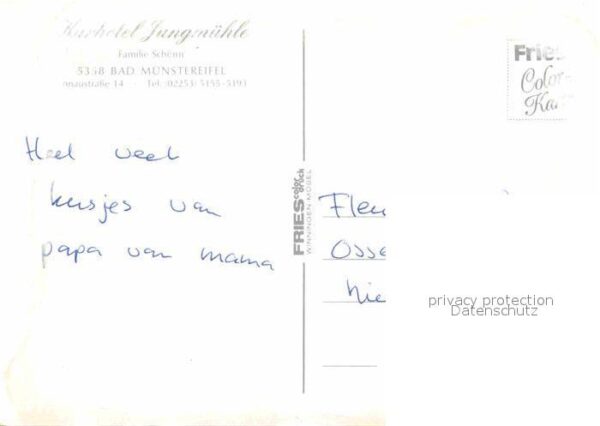 Kurhotel Jungmühle
Familie Schönn
5358 BAD MÜNSTEREIFEL
onaustraße 14 · Tel. (02253) 5155-5193
Fries
Color-
Kar
Heel veel
kusjes van
papa van mama
FRIES color druck
WINNINGEN MOSEL
Fleu
Osse
Nie
privacy protection
Datenschutz